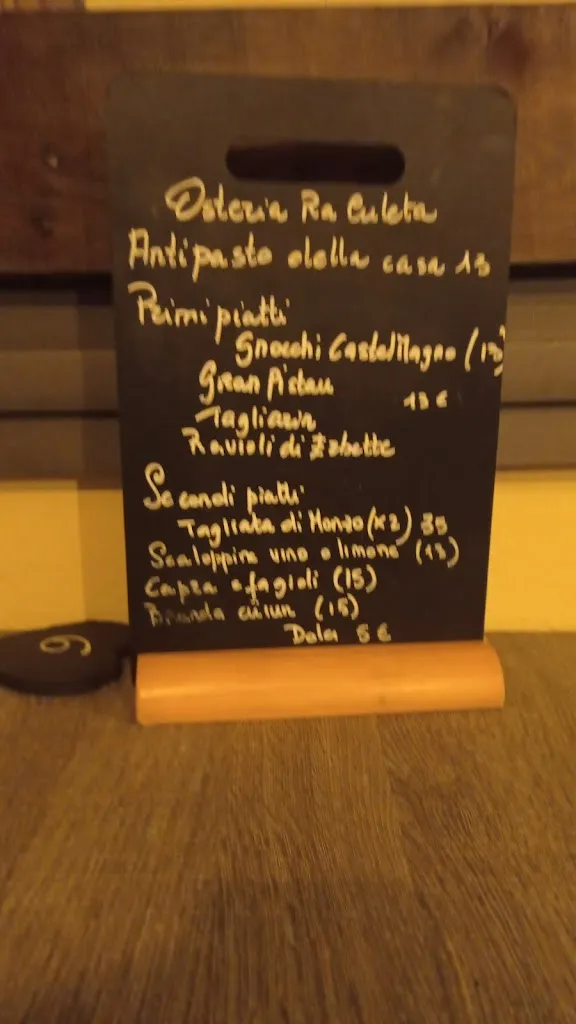 Osteria Ra Culeta
Antipasto della casa 13
Primi piatti
Gnocchi CastelMagno (13)
Gran Pistau
13 €
Tagliarin
Ravioli di Erbette
Secondi piatti
Tagliata di Manzo (x2) 35
Scaloppina vino o limone (13)
Capra e fagioli (15)
Branda cuiun (15)
Dolci 5 €
6